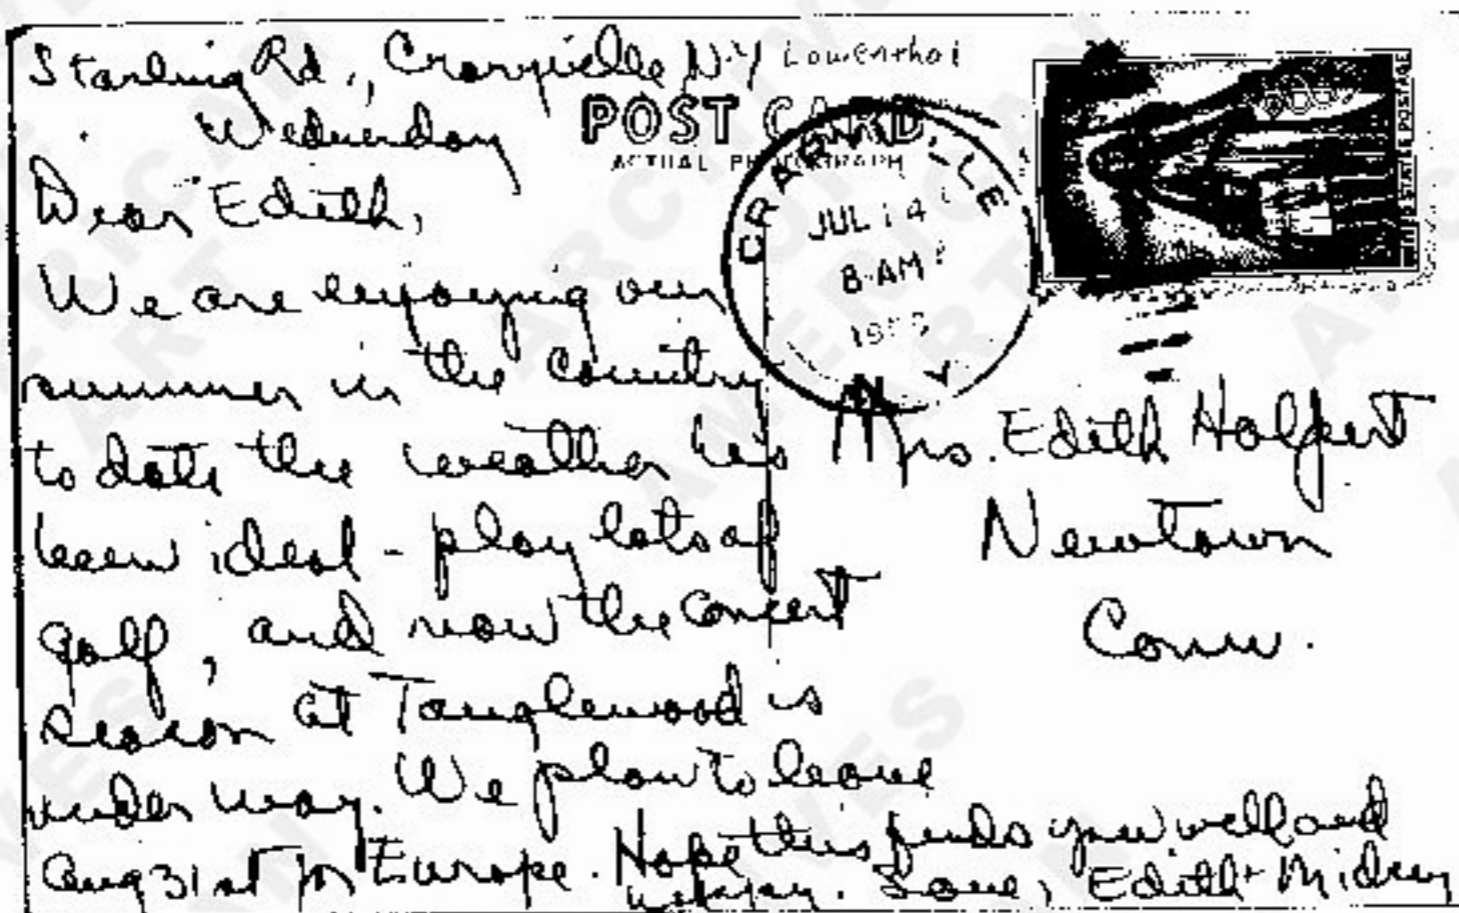 Starling Rd., Craryville N.Y Lowenthal
Wednesday
POST CARD
ACTUAL PHOTOGRAPH
CRARYVILLE
JUL 14
8-AM
N Y
STATES POSTAGE
Dear Edith,
We are enjoying our
summer in the country
to date the weather has
been ideal - play lots of
golf, and now the concert
season at Tanglewood is
under way. We plan to leave
Aug 31st for Europe. Hope this finds you well and
Love, Edith + Milton
Mrs. Edith Halpert
Newtown
Conn.
AMERICAN
ART
ARCHIVES